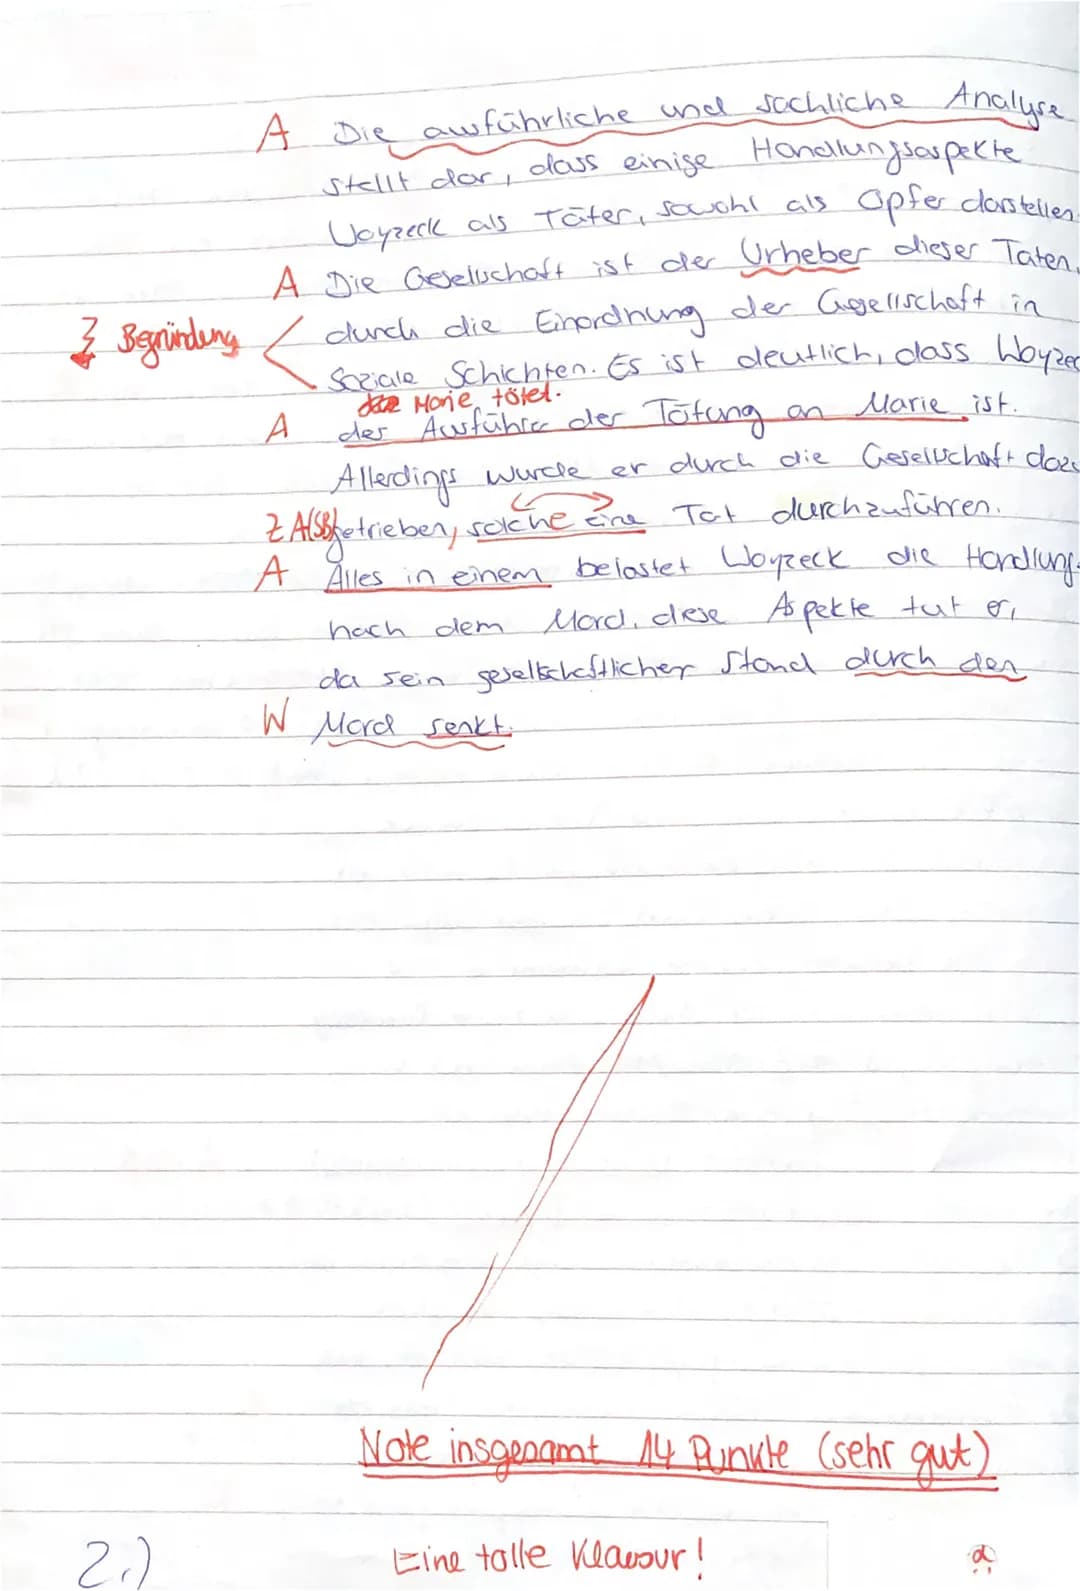 A Die ausführliche und sachliche Analyse
stellt dar, dass einige Handlungsaspekte
Woyzeck als Täter, sowohl als Opfer darstellen.
A Die Gesellschaft ist der Urheber dieser Taten,
Begründung durch die Einordnung der Gesellschaft in
Soziale Schichten. Es ist deutlich, dass Woyzec
Marie tötet.
A der Ausführer der Tötung an Marie ist.
Allerdings wurde er durch die Gesellschaft dazu
Z A(SB) getrieben, solche eine Tat durchzuführen.
A Alles in einem belastet Woyzeck die Handlung
nach dem Mord, diese Aspekte tut er,
da sein gesellschaftlicher Stand durch den
W Mord senkt.
Note insgesamt 14 Punkte (sehr gut)
2.) Eine tolle Klausur!